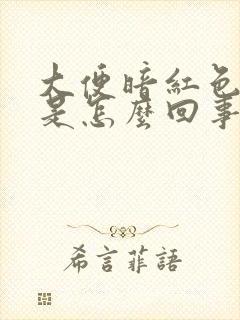 大便暗紅色
是怎麼回事
希言菲語